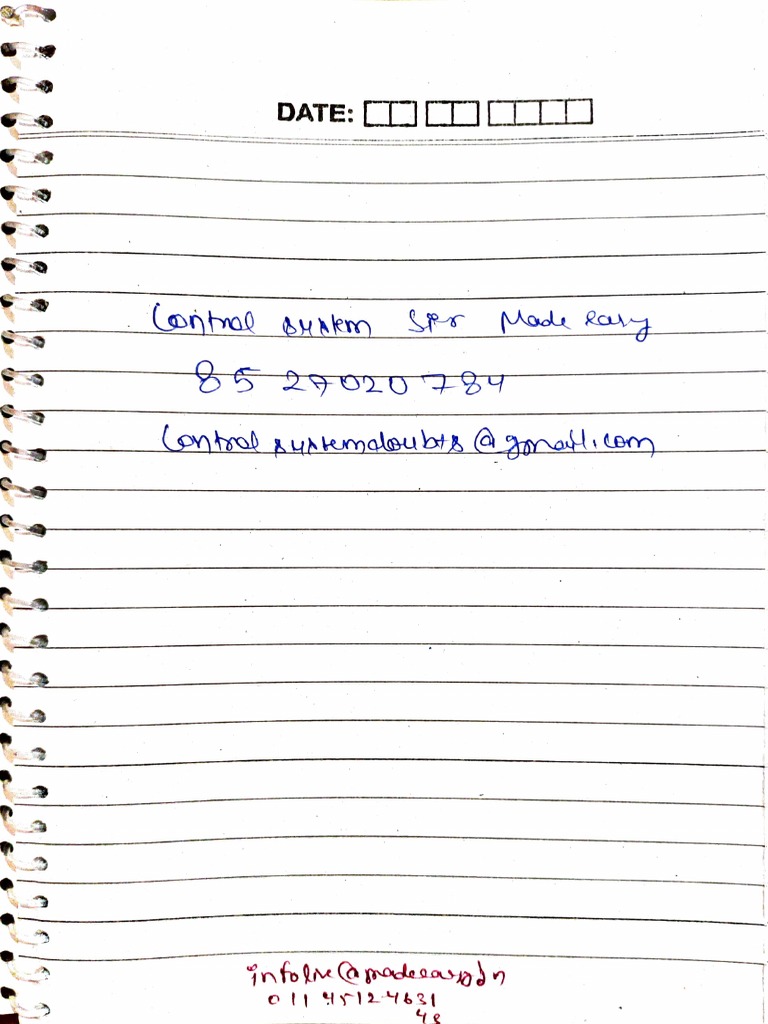 DATE:
Control system Sir Made easy
85 27020 784
Control systemdoubts@gmail.com
011 45124631
48